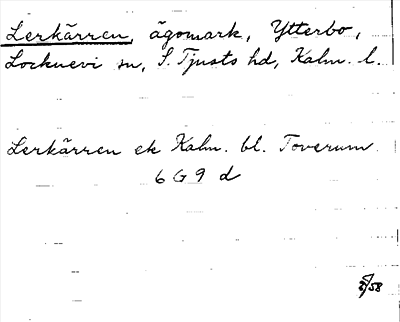 Lerkärren, ägomark, Ytterbo,
Locknevi sn, S. Tjusts hd, Kalm. l.
Lerkärren ek Kalm. bl. Toverum
6 G 9 d
/58